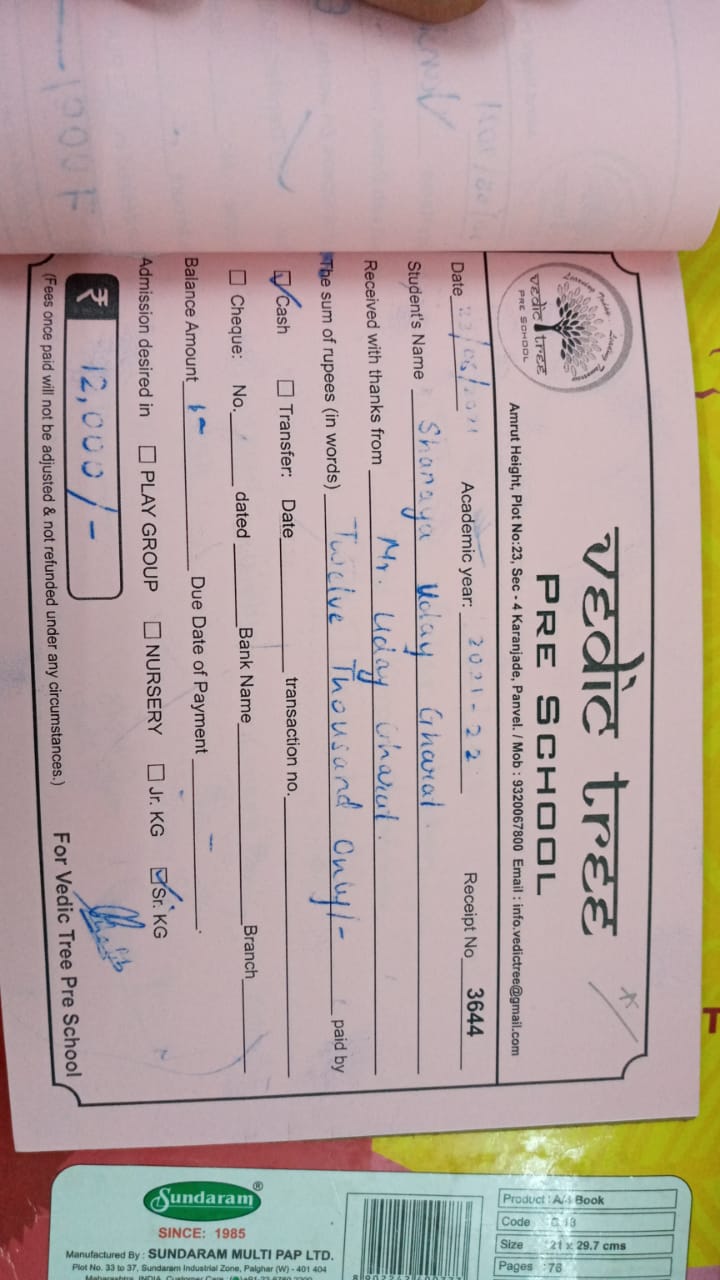 vedic tree
PRE SCHOOL
Amrut Height, Plot No:23, Sec - 4 Karanjade, Panvel. / Mob : 9320067800 Email : info.vedictree@gmail.com
vedic tree
PRE SCHOOL
Date 23/06/2021 Academic year: 2021-22 Receipt No 3644
Student's Name Sharaya Uday Gharat.
Received with thanks from Mr. Uday Gharat.
The sum of rupees (in words) Twelve Thousand Only/- paid by
Cash Transfer: Date transaction no.
Cheque: No. dated Bank Name Branch
Balance Amount Due Date of Payment -
Admission desired in PLAY GROUP NURSERY Jr. KG Sr. KG
₹ 12,000/-
(Fees once paid will not be adjusted & not refunded under any circumstances.) For Vedic Tree Pre School
Sundaram®
SINCE: 1985
Manufactured By : SUNDARAM MULTI PAP LTD.
Plot No. 33 to 37, Sundaram Industrial Zone, Palghar (W) - 401 404
Product : A/4 Book
Code
Size : 21 x 29.7 cms
Pages : 76